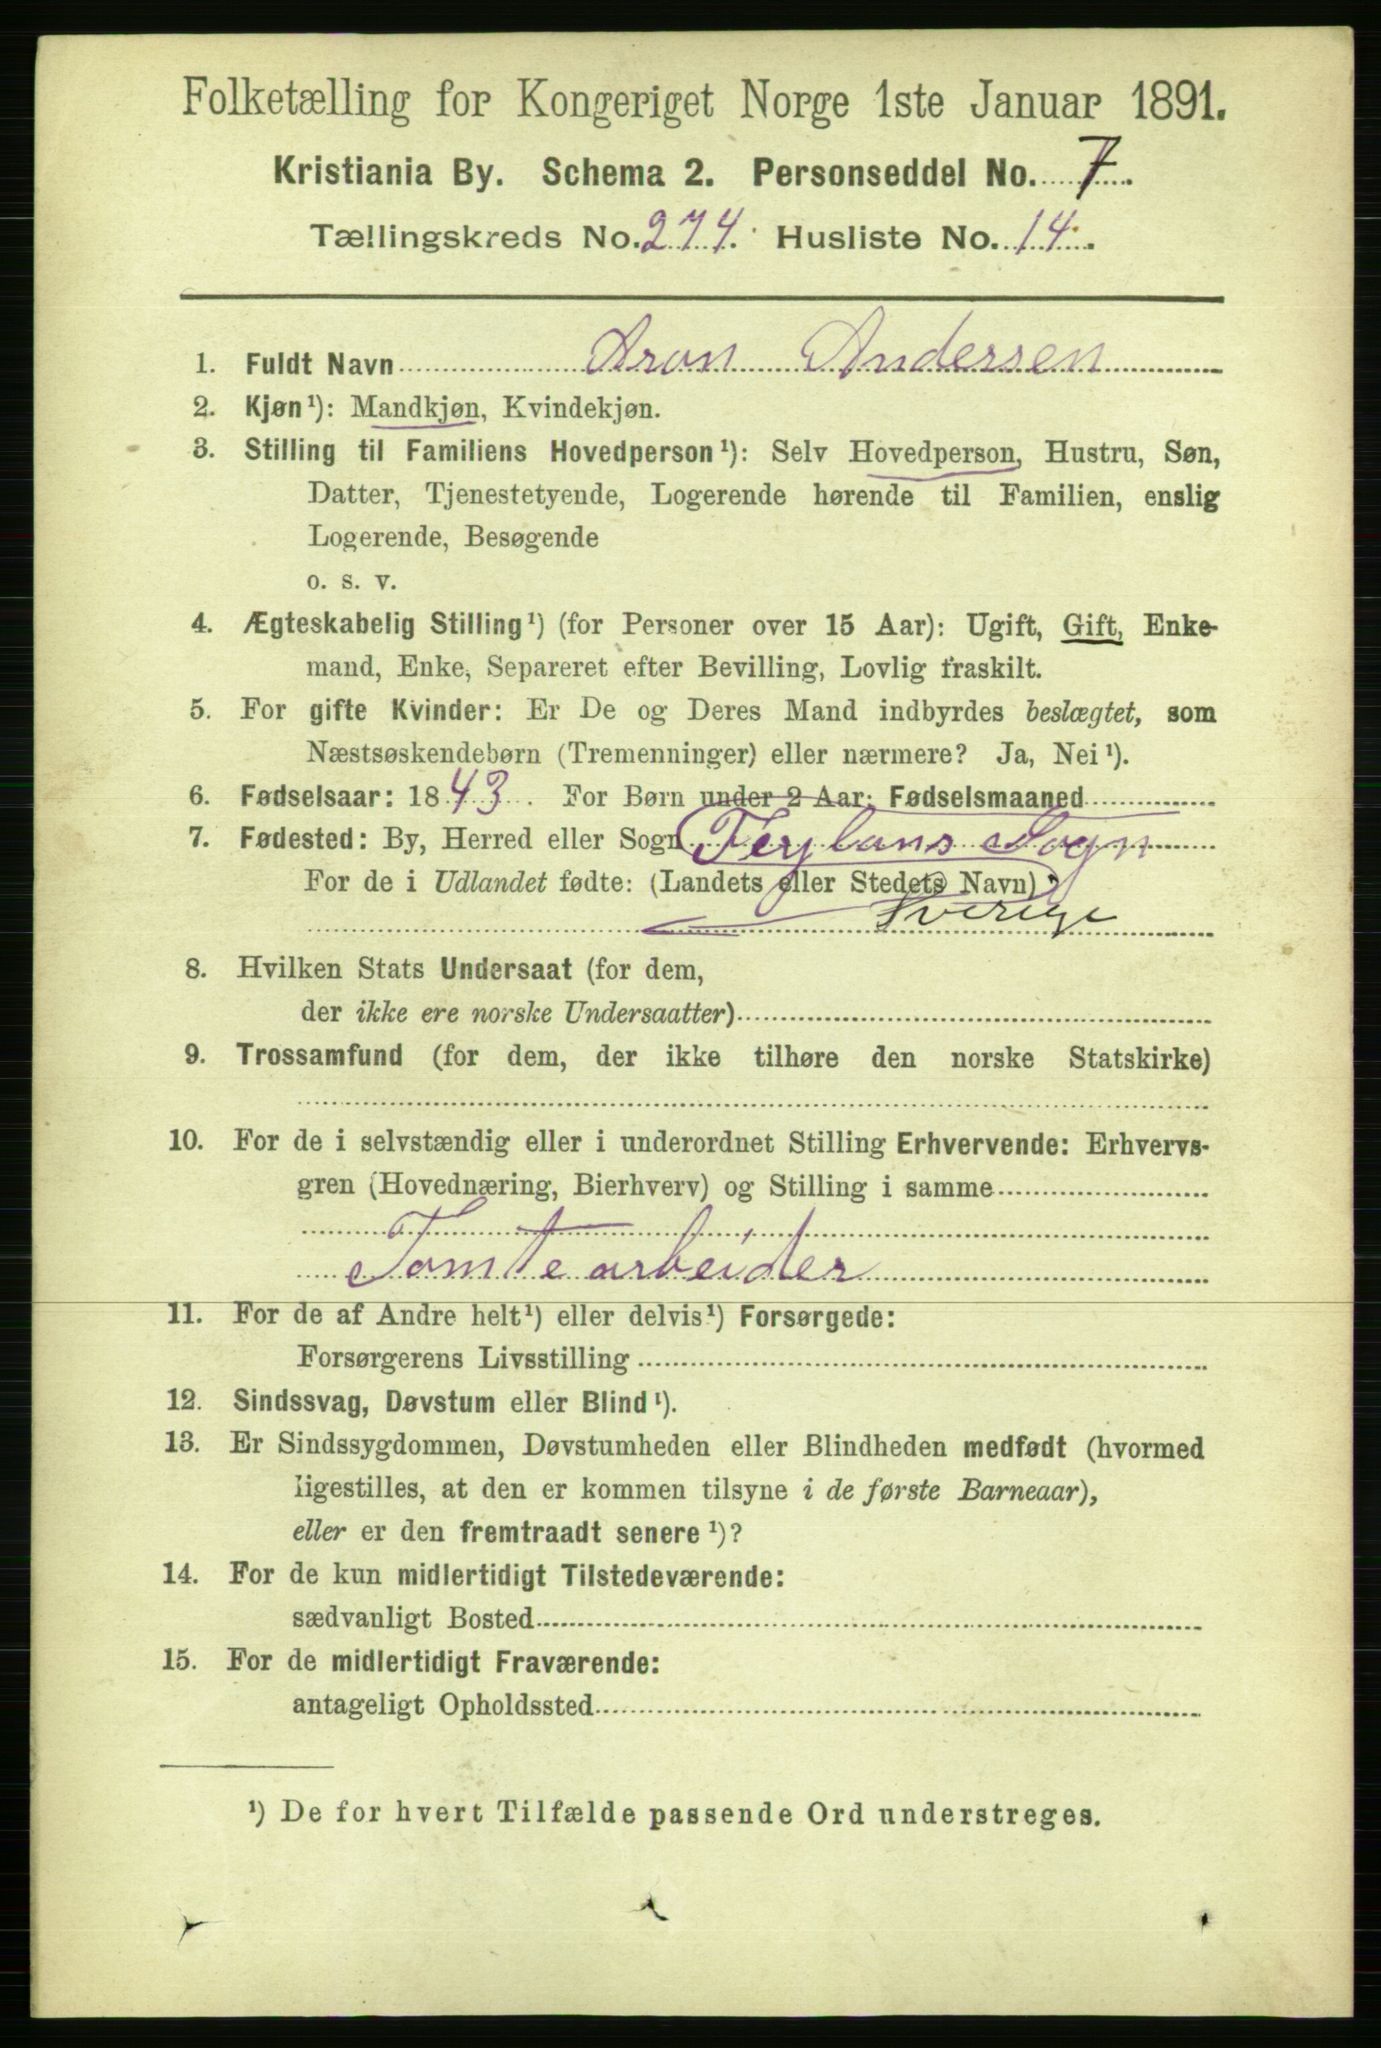 Folketælling for Kongeriget Norge 1ste Januar 1891.
Kristiania By. Schema 2. Personseddel No. 7.
Tællingskreds No. 274. Husliste No. 14.
1. Fuldt Navn Aron Andersen
2. Kjøn¹): Mandkjøn, Kvindekjøn.
3. Stilling til Familiens Hovedperson¹): Selv Hovedperson, Hustru, Søn,
Datter, Tjenestetyende, Logerende hørende til Familien, enslig
Logerende, Besøgende
o. s. v.
4. Ægteskabelig Stilling¹) (for Personer over 15 Aar): Ugift, Gift, Enke-
mand, Enke, Separeret efter Bevilling, Lovlig fraskilt.
5. For gifte Kvinder: Er De og Deres Mand indbyrdes beslægtet, som
Næstsøskendebørn (Tremenninger) eller nærmere? Ja, Nei¹).
6. Fødselsaar: 1843. For Børn under 2 Aar: Fødselsmaaned
7. Fødested: By, Herred eller Sogn Feylans Sogn
For de i Udlandet fødte: (Landets eller Stedets Navn)
Sverige
8. Hvilken Stats Undersaat (for dem,
der ikke ere norske Undersaatter)
9. Trossamfund (for dem, der ikke tilhøre den norske Statskirke)
10. For de i selvstændig eller i underordnet Stilling Erhvervende: Erhvervs-
gren (Hovednæring, Bierhverv) og Stilling i samme
Tomtearbeider
11. For de af Andre helt¹) eller delvis¹) Forsørgede:
Forsørgerens Livsstilling
12. Sindssvag, Døvstum eller Blind¹).
13. Er Sindssygdommen, Døvstumheden eller Blindheden medfødt (hvormed
ligestilles, at den er kommen tilsyne i de første Barneaar),
eller er den fremtraadt senere¹)?
14. For de kun midlertidigt Tilstedeværende:
sædvanligt Bosted
15. For de midlertidigt Fraværende:
antageligt Opholdssted
¹) De for hvert Tilfælde passende Ord understreges.